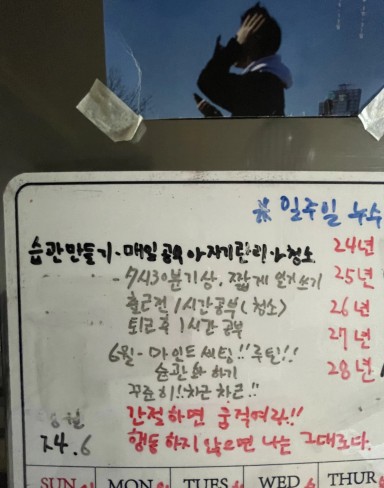 ※ 일주일 뉴스
습관만들기 - 매일 공욱 아 자기관리 아 청소 24년
- 7시30분기상, 짧게 일기쓰기 25년
출근전 1시간공부(청소) 26년
퇴근후 1시간 공부 27년
6월 - 마인드 셋팅!! 루틴!!
습관화 하기 28년
꾸준히!! 차근 차근!!
6월 간절하면 움직여라!!
74.6 행동하지 않으면 나는 그대로다.
SUN MON TUES WED THUR